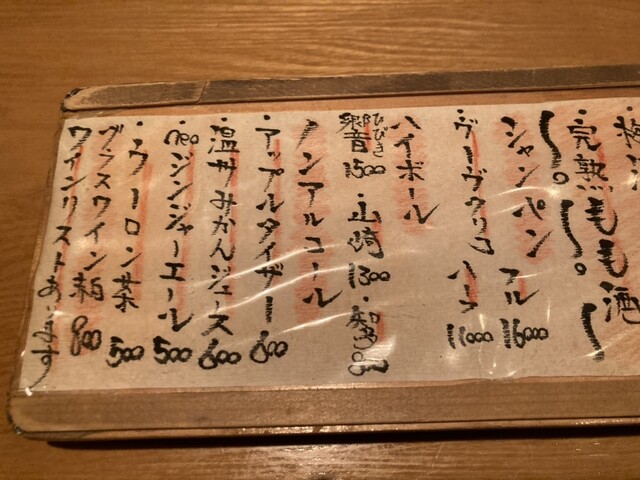 ・完熟もも酒
シャンペン フル 16000
ハーフ 11000
ハイボール
響 ひびき 1500 ・山崎 1300
ノンアルコール
・アップルタイザー 600
・温州みかんジュース 600
・ジンジャーエール 500
・ウーロン茶 500
グラスワイン 赤白 800
ワインリストあります